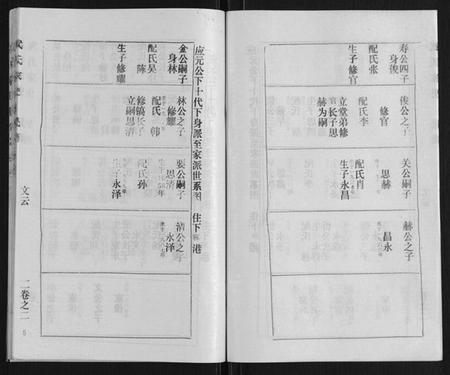 寿公四子
身俊
配氏张
生子修官
俊公之子
修官
配氏李
立堂弟修
官长子思
赫为嗣
关公嗣子
思赫
配氏肖
生子永昌
赫公之子
永昌
应元公下十代下身派至家派世系图
住下
港
金公嗣子
身林
配氏吴
陈
生子修耀
林公之子
修耀
配氏韩
修镐长子
立嗣思清
公嗣子
思清
配氏孙
生子永泽
清公之子
永泽
文云
二卷之二